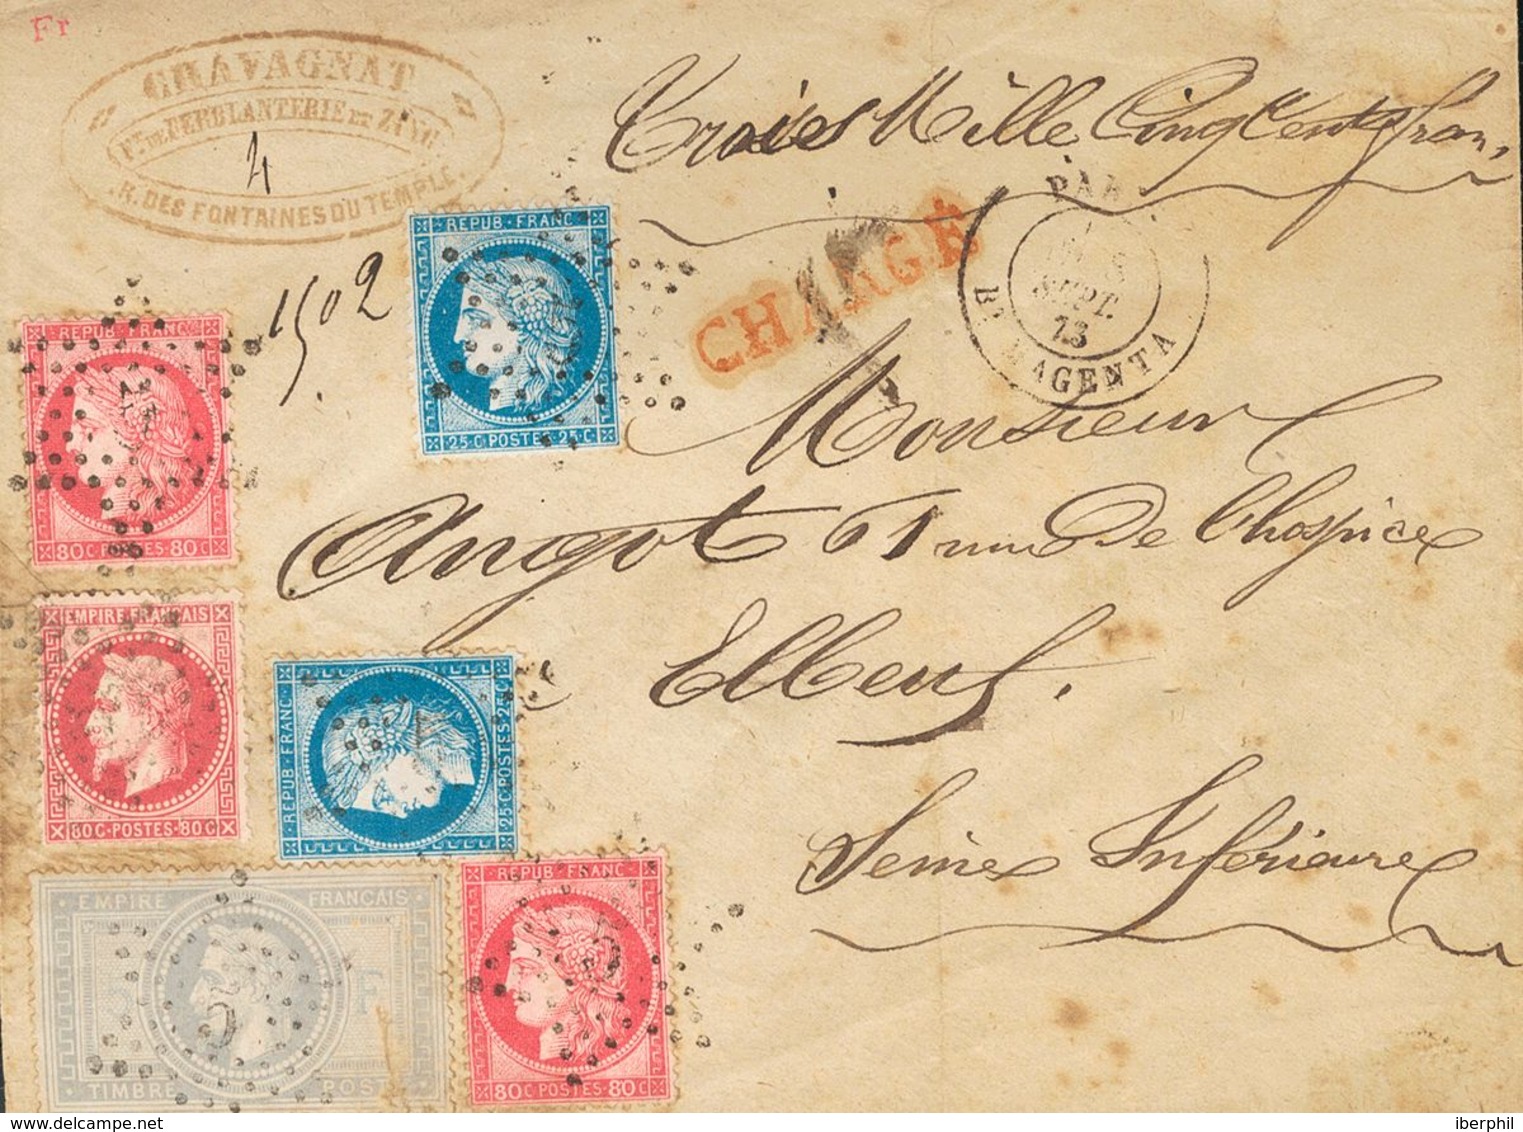 Fr
GRAVAGNAT
Ft DE FERBLANTERIE ET ZINC
4
R. DES FONTAINES DU TEMPLE.
Trois Mille Cinq Cents fran
1502
CHARGÉ
PAR
SEPT.
73
MAGENTA
Monsieur
Angot 61 rue De l'hospice
Elbeuf.
Seine Inférieure
REPUB·FRANC
25·C POSTES·25·C
REPUB·FRANC
80·C POSTES·80·C
EMPIRE·FRANÇAIS
80C·POSTES·80C
REPUB·FRANC
25·C POSTES·25·C
EMPIRE FRANÇAIS
5 F
TIMBRE POSTE
REPUB·FRANC
80·C POSTES·80·C
iberphil